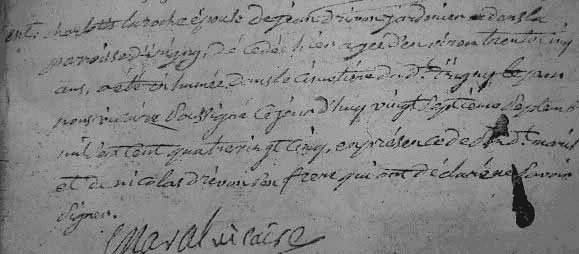 charlotte laroche épouse de jean drivon jardinier dans la
paroisse d'irigny, décédée hier agée d'environ trente cinq
ans, a été inhumée dans le cimetière dud. irigny par
nous vicaire soussigné ce jourd'huy vingt septième
mil sept cent quatre vingt cinq, en présence de dud. mari
et de nicolas drivon son frere qui ont déclaré ne savoir
signer.
vicaire